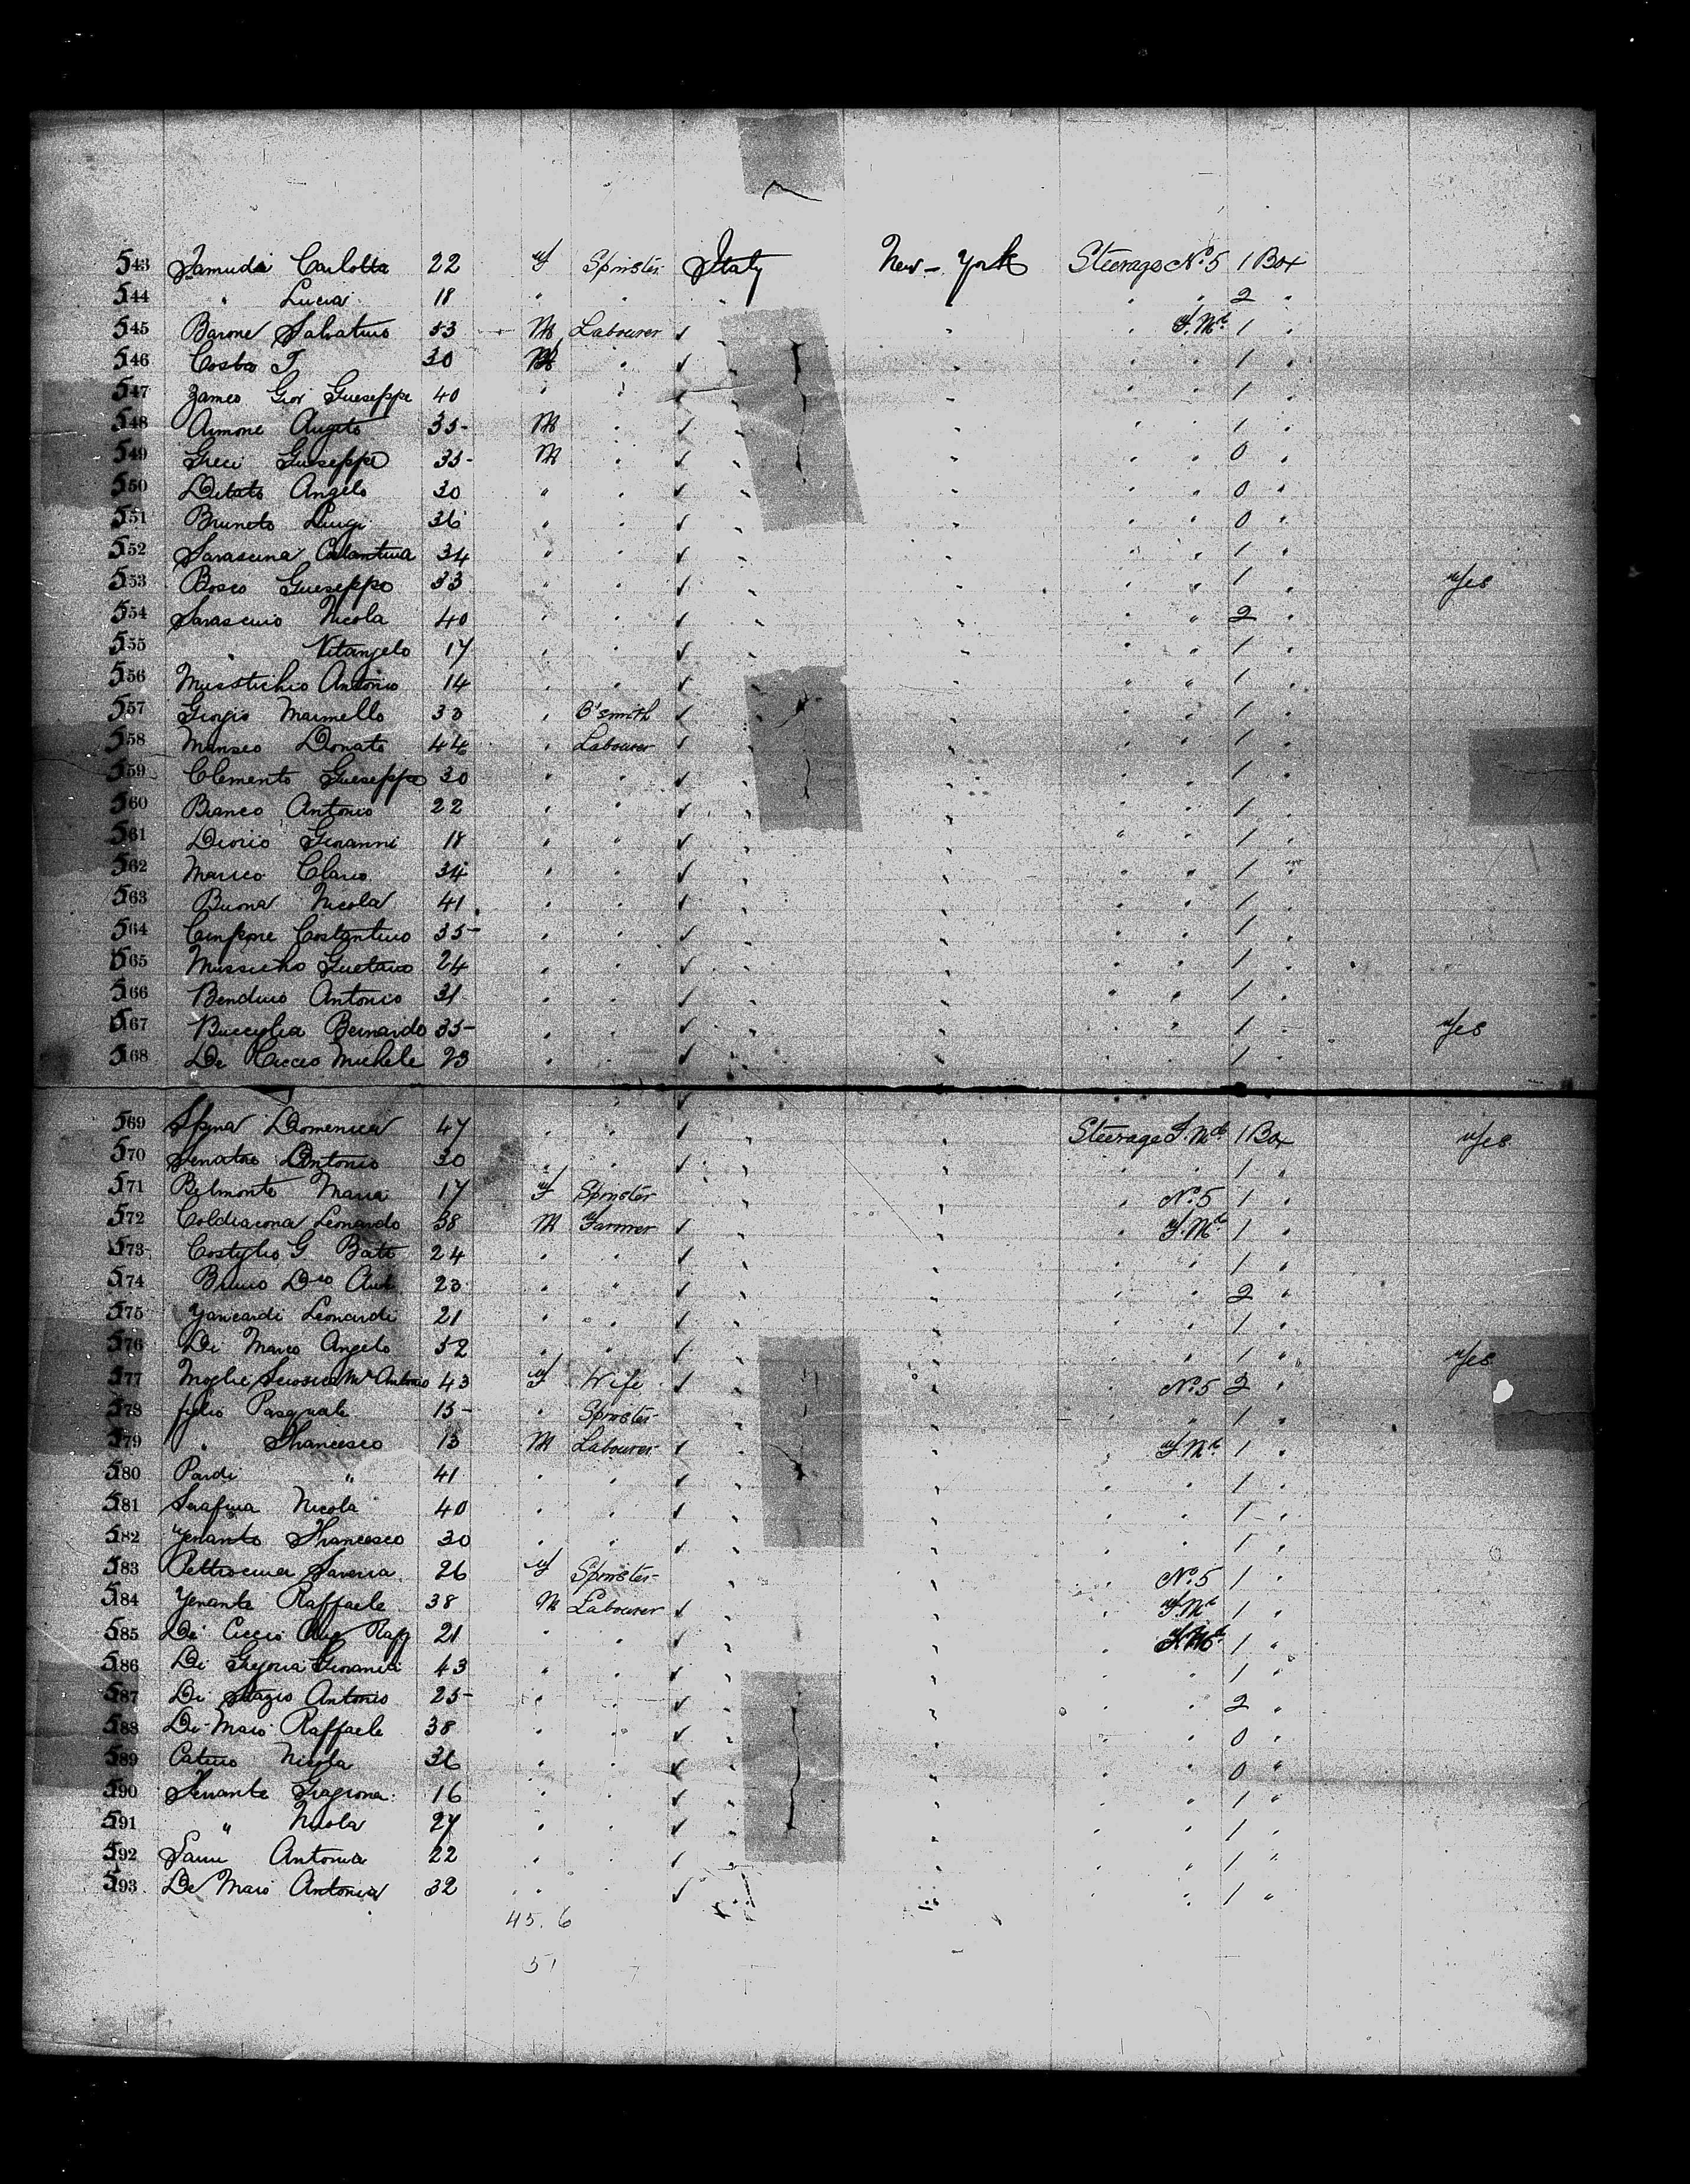 543 Jamuda Carlotta 22 f Spinster Italy New-York Steerage No. 5 1 Box
544 " Lucia 18 " " " " " " 2 "
545 Barone Salvatino 53 M Labourer " " " F. Md. 1 "
546 Costa T 30 M " " " " " 1 "
547 Zameo Giov Gueseppe 40 " " " " " " 1 "
548 Aimone Augito 35 M " " " " " 1 "
549 Greci Guseppe 35 M " " " " " 0 "
550 Ditato Angelo 30 " " " " " " 0 "
551 Bruneto Luigi 36 " " " " " " 0 "
552 Sarascina 34 " " " " " " 1 "
553 Bosco Gueseppe 33 " " " " " " 1 " Yes
554 Sarascino Nicola 40 " " " " " " 2 "
555 " Vitangelo 17 " " " " " " 1 "
556 Musstichio Antonio 14 " " " " " " 1 "
557 Giorgio Marmello 33 " B'smith " " " " 1 "
558 Manseo Donato 44 " Labourer " " " " 1 "
559 Clemento Gueseppe 30 " " " " " " 1 "
560 Bianco Antonio 22 " " " " " " 1 "
561 Diorio Giovanni 18 " " " " " " 1 "
562 Marico Clario 34 " " " " " " 1 "
563 Buona Nicola 41 " " " " " " 1 "
564 Costantino 35 " " " " " " 1 "
565 Gaetano 24 " " " " " " 1 "
566 Benduio Antonio 31 " " " " " " 1 "
567 Bucciglia Bernardo 35 " " " " " " 1 " Yes
568 De Ciccio Michele 23 " " " " " " 1 "
569 Spina Domenica 47 " " " " Steerage F. Md. 1 Box Yes
570 Senatro Antonio 30 " " " " " " 1 "
571 Belmonte Maria 17 f Spinster " " " No. 5 1 "
572 Coldiacona Leonardo 38 M Farmer " " " F. Md. 1 "
573 Costiglio G. Batt 24 " " " " " " 1 "
574 Bruno Dco Ant 23 " " " " " " 2 "
575 Yancardi Leonardi 21 " " " " " " 1 "
576 Di Marco Angelo 52 " " " " " " 1 " Yes
577 Moglie Antonio 43 f Wife " " " No. 5 2 "
578 figlio Pasquale 15 " Spinster " " " " 1 "
579 " Francesco 13 M Labourer " " " F. Md. 1 "
580 Pardi " 41 " " " " " " 1 "
581 Serafina Nicola 40 " " " " " " 1 "
582 Yenanto Francesco 30 " " " " " " 1 "
583 Pettrocina Saveria 26 f Spinster " " " No. 5 1 "
584 Yenante Raffaele 38 M Labourer " " " F. Md. 1 "
585 De Ciccio Rap 21 " " " " " F. Md. 1 "
586 Di Gregoria Giovania 43 " " " " " " 1 "
587 Di Stazio Antonio 25 " " " " " " 2 "
588 De Maio Raffaele 38 " " " " " " 0 "
589 Catino Nicola 36 " " " " " " 0 "
590 16 " " " " " " 1 "
591 " Nicola 27 " " " " " " 1 "
592 Antonia 22 " " " " " " 1 "
593 De Maio Antonia 32 " " " " " " 1 "
45. 6
51